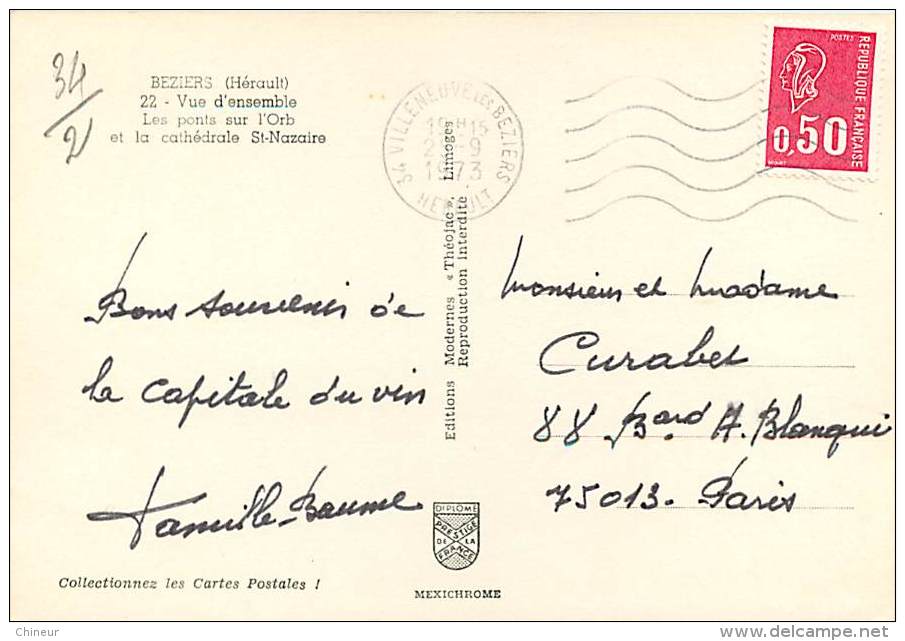 34/2
BEZIERS (Hérault)
22 - Vue d'ensemble
Les ponts sur l'Orb
et la cathédrale St-Nazaire
34 VILLENEUVE LES BEZIERS
19H15
-9
1973
HERAULT
POSTES
REPUBLIQUE FRANÇAISE
0,50
Bons souvenirs de
la capitale du vin
Famille Baume
Editions Modernes « Théojac ». Limoges
Reproduction interdite
Monsieur et Madame
Curabet
88 Bard A. Blanqui
75013 - Paris
DIPLOME
PRESTIGE
DE LA
FRANCE
Collectionnez les Cartes Postales !
MEXICHROME
Chineur
delcampe.net